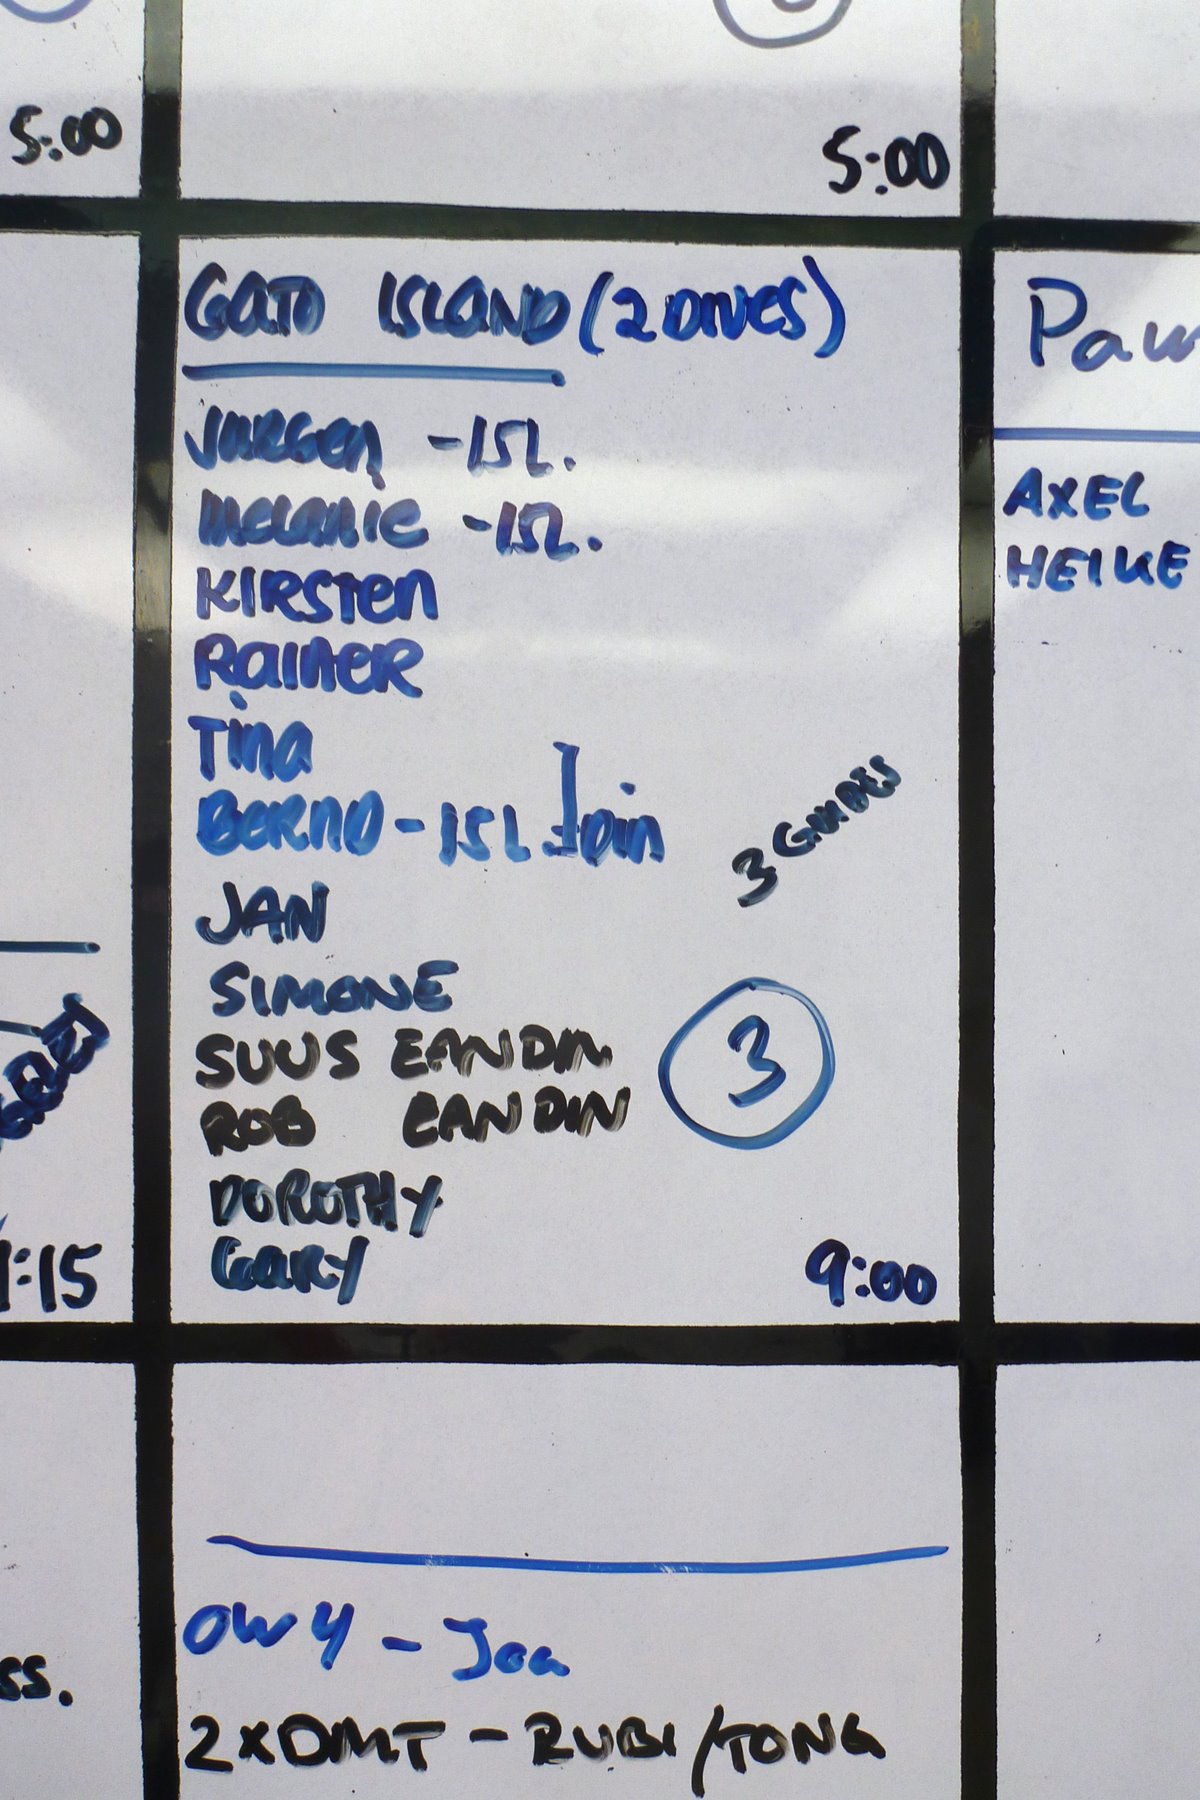 5:00
5:00
GATO ISLAND (2 DIVES)
JURGEN - 15L.
MELANIE - 15L.
KIRSTEN
RAINER
Tina
BERND - 15L Join
3 GUIDES
JAN
SIMONE
3
SUUS EANDIN
ROB EANDIN
DOROTHY
GARY
1:15
9:00
AXEL
HEIKE
OW 4 - Joa
ss.
2xDMT - RUBI/TONG